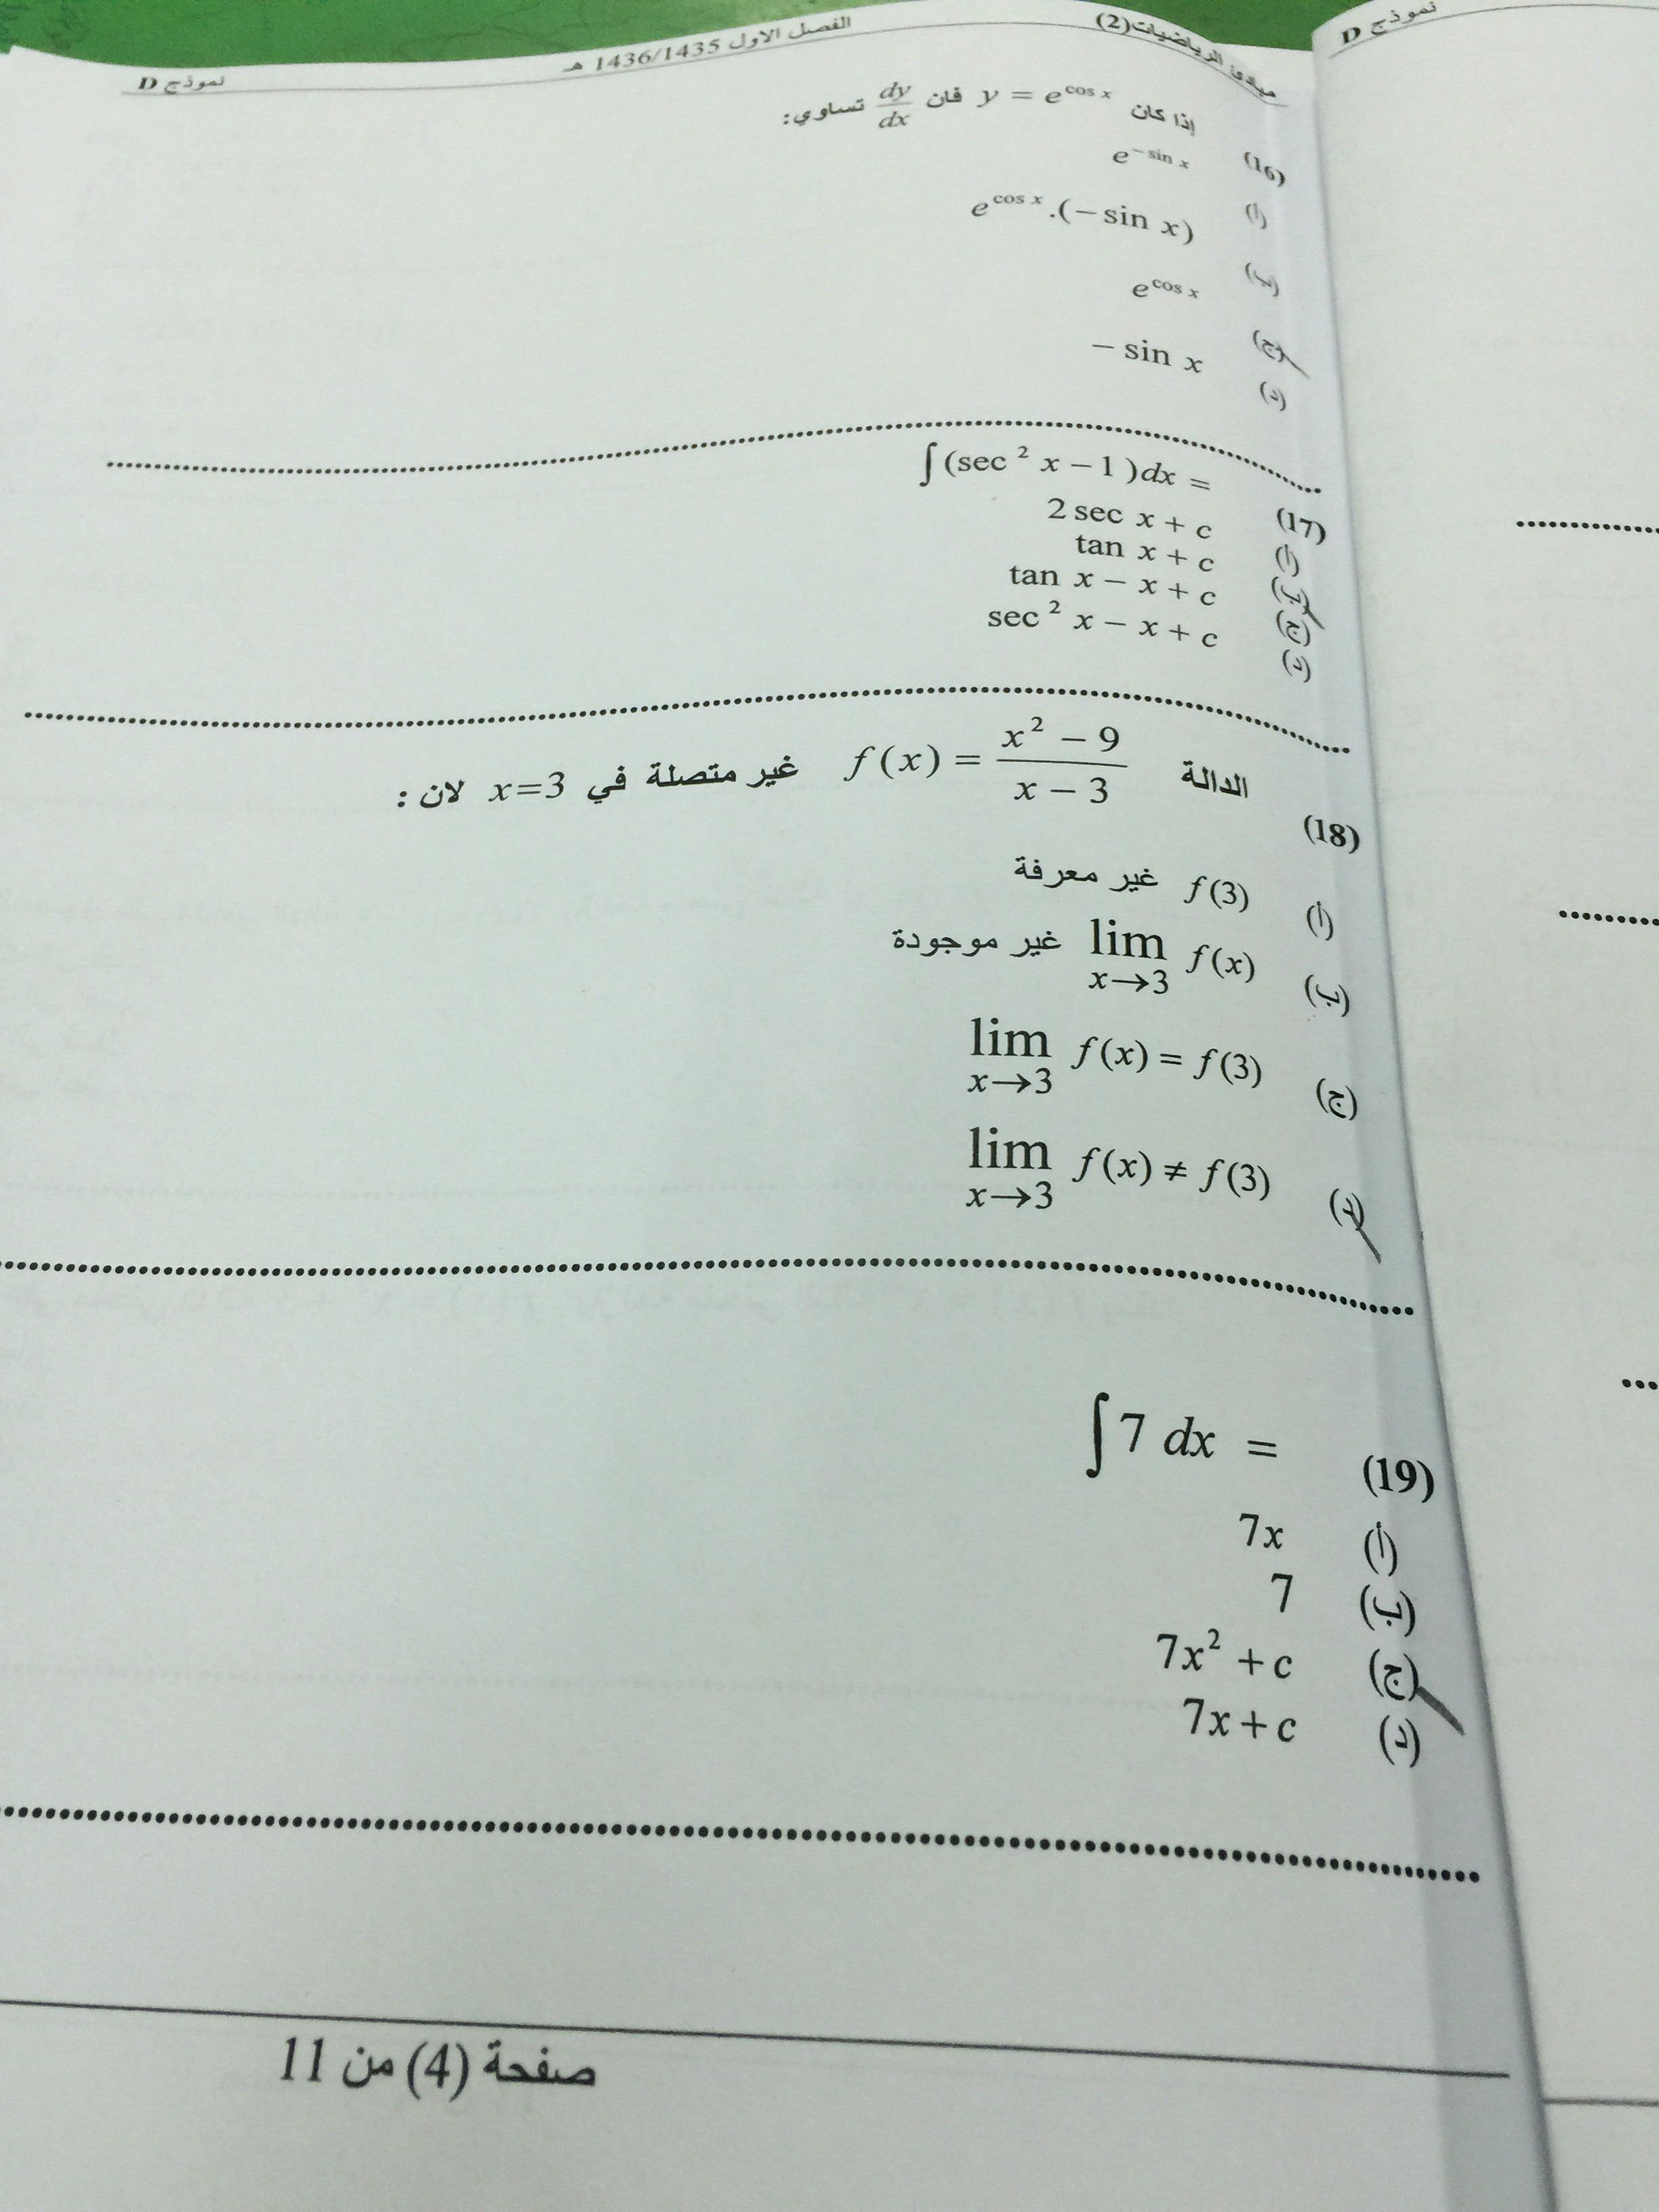 مبادئ الرياضيات(2) الفصل الاول 1436/1435 هـ نموذج D
نموذج D
(16) إذا كان y = e^{cos x} فان \frac{dy}{dx} تساوي:
(أ) e^{-sin x}
(ب) e^{cos x}.(-sin x)
(ج) e^{cos x}
(د) - sin x
(17) ∫(sec² x - 1)dx =
(أ) 2 sec x + c
(ب) tan x + c
(ج) tan x - x + c
(د) sec² x - x + c
(18) الدالة f(x) = \frac{x² - 9}{x - 3} غير متصلة في x=3 لان :
(أ) f(3) غير معرفة
(ب) lim_{x→3} f(x) غير موجودة
(ج) lim_{x→3} f(x) = f(3)
(د) lim_{x→3} f(x) ≠ f(3)
(19) ∫7 dx =
(أ) 7x
(ب) 7
(ج) 7x² + c
(د) 7x + c
صفحة (4) من 11